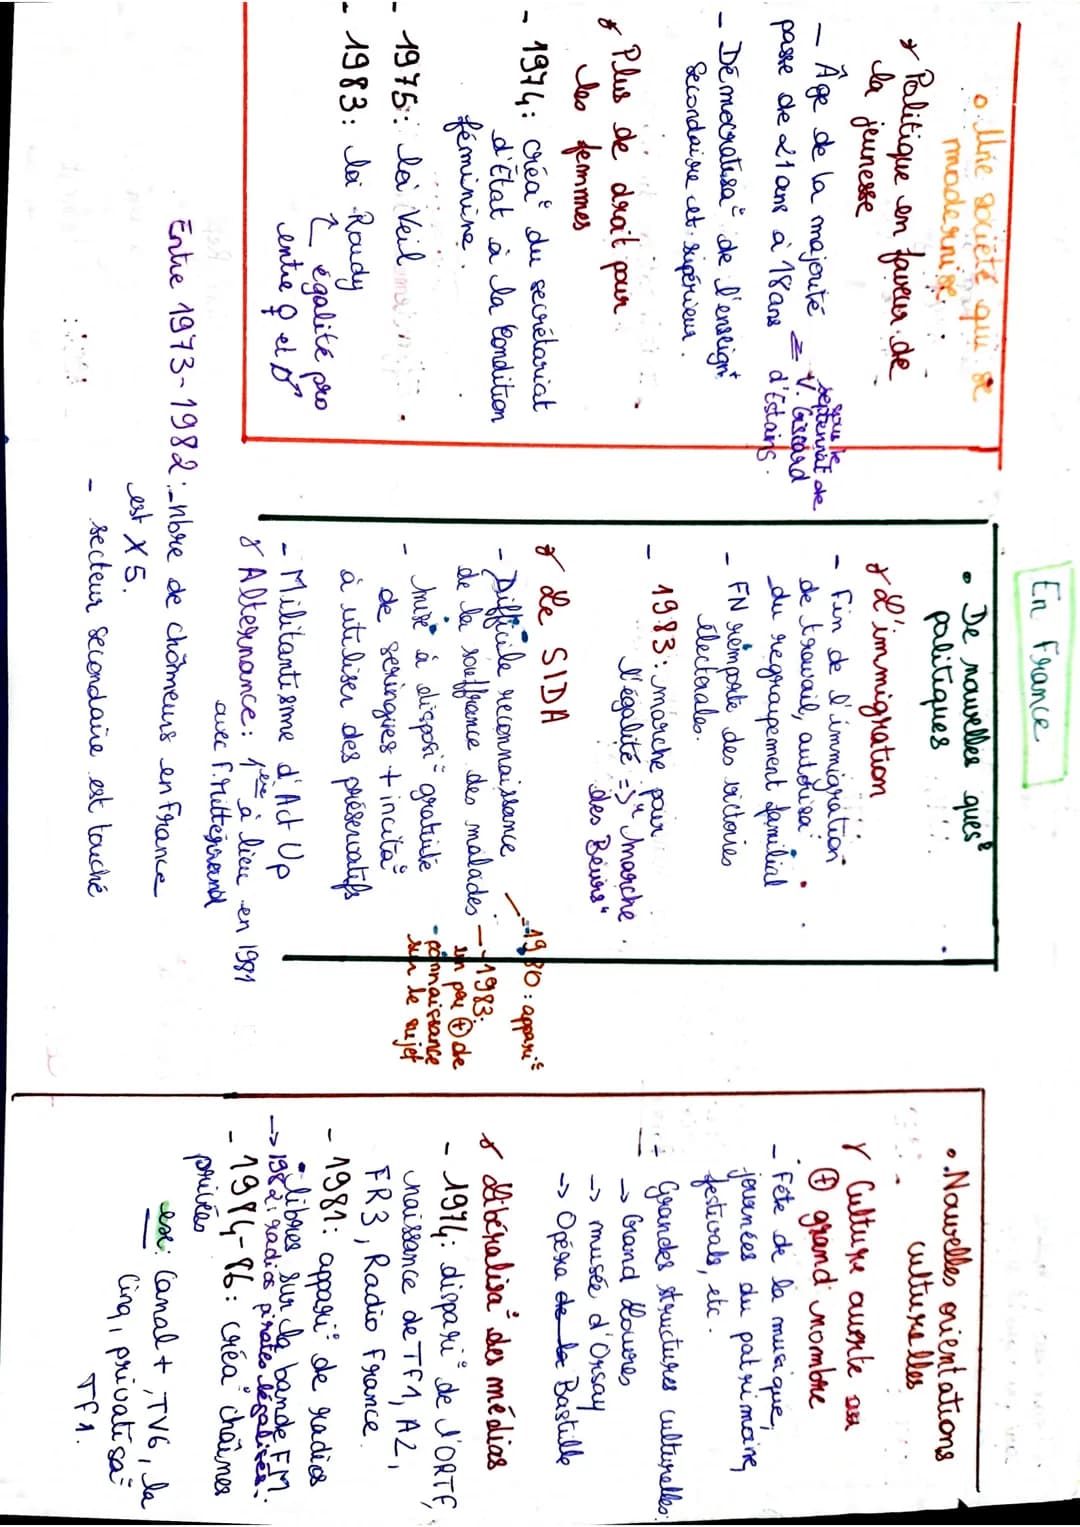 En France
o Une société qui se
modernise.
* Politique en faveur de
la jeunesse
- Âge de la majorité
passe de 21 ans à 18 ans
= sous le
septennat de
V. Giscard
d'Estaing.
- Démocratisa° de l'enseignt
secondaire et supérieur.
* Plus de droit pour
les femmes
- 1974: créa° du secrétariat
d'État à la Condition
féminine.
- 1975: loi Veil
- 1983: loi Roudy
↳ égalité pro
entre ♀ et ♂
• De nouvelles ques°
politiques
* L'immigration
- Fin de l'immigration
de travail, autorisa°
du regroupement familial
- FN remporte des victoires
électorales.
- 1983: marche pour
l'égalité => "Marche
des Beurs"
* Le SIDA
- Difficile reconnaissance
de la souffrance des malades
- 1980: appari°
- 1983:
un peu ⊕ de
connaissance
sur le sujet
- mise à disposi° gratuite
de seringues + incita°
à utiliser des préservatifs
- Militantisme d'Act Up
* Alternance: 1ère à lieu en 1981
avec F. Mitterrand
Entre 1973-1982: - nbre de chômeurs en France
est x 5.
- secteur secondaire est touché
• Nouvelles orientations
culturelles
* Culture ouverte au
⊕ grand nombre
- Fête de la musique,
journées du patrimoine,
festivals, etc.
- Grandes structures culturelles:
-> Grand Louvre
-> musée d'Orsay
-> Opéra de la Bastille
* Libéralisa° des médias
- 1974: dispari° de l'ORTF,
naissance de TF1, A2,
FR3, Radio France.
- 1981: appari° de radios
libres sur la bande FM.
-> 1982: radios pirates légalisées.
- 1984-86: créa° chaînes
privées
ex: Canal +, TV6, la
Cinq, privatisa°
TF1.